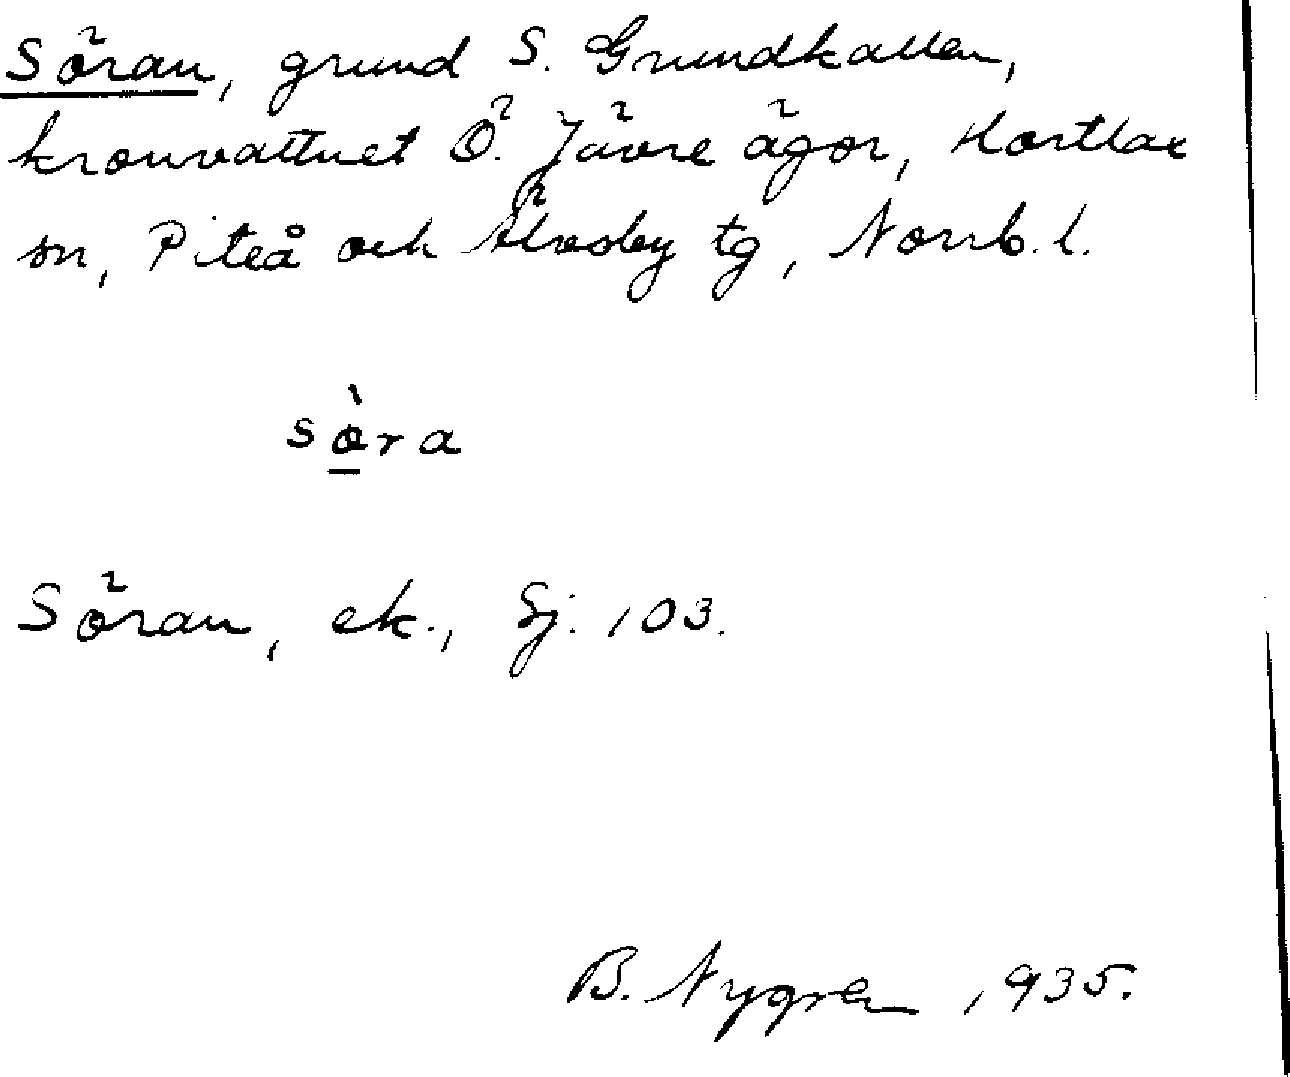 Söran, grund S. Grundkallen,
kronvattnet Ö. Jävre ägor, Hortlax
sn, Piteå och Älvsby tg, Norrb. l.
sò̱ra
Söran, ek., Sj. 103.
B. Nygren 1935.